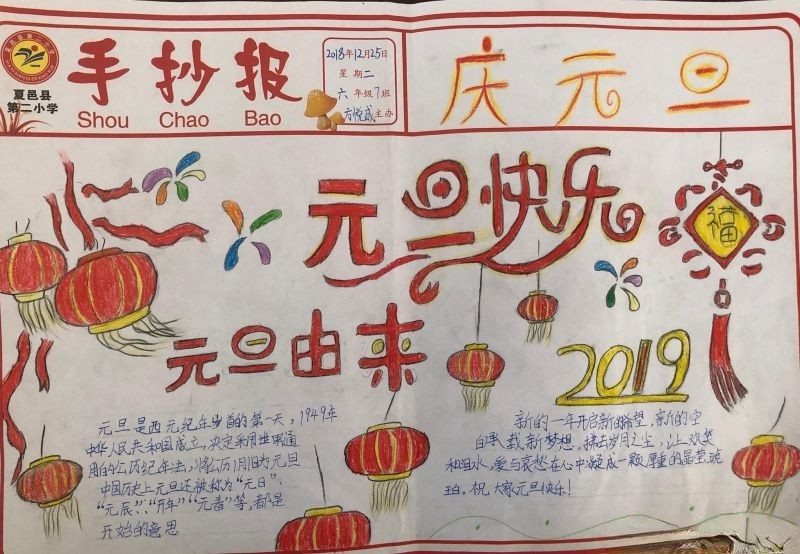 夏邑县
第二小学
手抄报
Shou Chao Bao
2018年12月25日
星期二
六年级7班
主办
庆元旦
元旦快乐
福
元旦由来
2019
元旦是西元纪年岁首的第一天，1949年
中华人民共和国成立，决定采用世界通
用的公历纪年法，将公历1月1日为元旦
中国历史上元旦还被称为“元日”、
“元辰”、“开年”“元春”等，都是
开始的意思
新的一年开启新的希望，新的空
白承载新梦想。拂去岁月之尘，让欢笑
和泪水，爱与哀愁在心中凝成一颗厚重的晶莹琥
珀。祝大家元旦快乐！